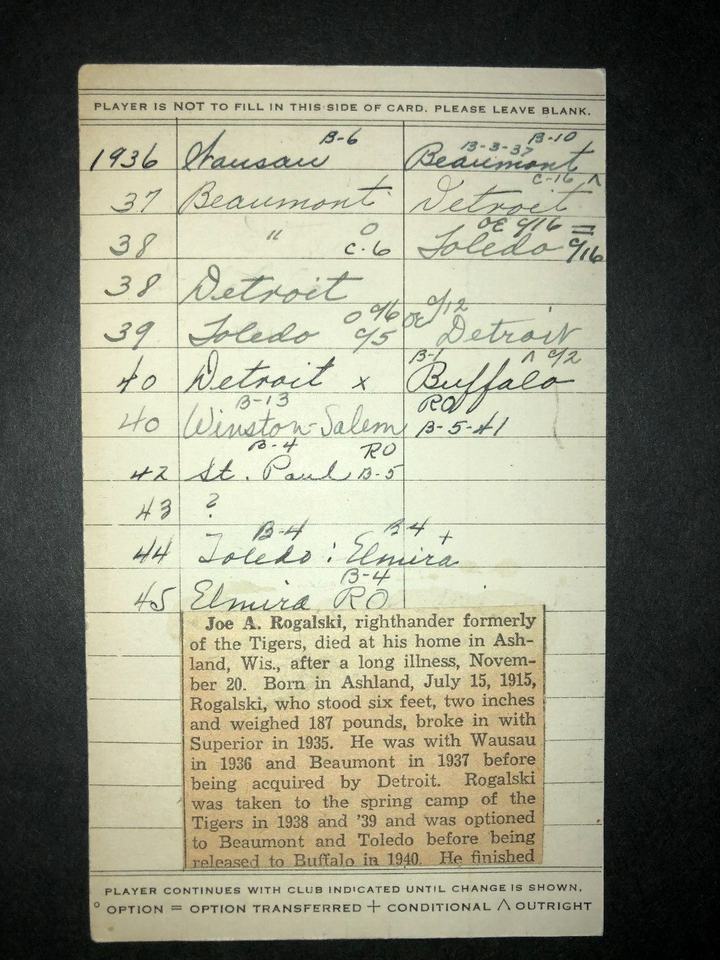 PLAYER IS NOT TO FILL IN THIS SIDE OF CARD. PLEASE LEAVE BLANK.
B-6 B-3-37 B-10
1936 Wausau Beaumont
C-16 ^
37 Beaumont Detroit
O OE 9/16 =
38 " C-6 Toledo 9/16
38 Detroit
O 9/16 OE 9/12
39 Toledo 9/5 Detroit
B-1 ^ 9/2
40 Detroit x Buffalo
B-13 RO
40 Winston-Salem B-5-41
B-4 RO
42 St. Paul B-5
43 ?
B-4 B-4 +
44 Toledo : Elmira
B-4
45 Elmira RO
Joe A. Rogalski, righthander formerly
of the Tigers, died at his home in Ash-
land, Wis., after a long illness, Novem-
ber 20. Born in Ashland, July 15, 1915,
Rogalski, who stood six feet, two inches
and weighed 187 pounds, broke in with
Superior in 1935. He was with Wausau
in 1936 and Beaumont in 1937 before
being acquired by Detroit. Rogalski
was taken to the spring camp of the
Tigers in 1938 and '39 and was optioned
to Beaumont and Toledo before being
released to Buffalo in 1940. He finished
PLAYER CONTINUES WITH CLUB INDICATED UNTIL CHANGE IS SHOWN.
° OPTION = OPTION TRANSFERRED + CONDITIONAL ^ OUTRIGHT